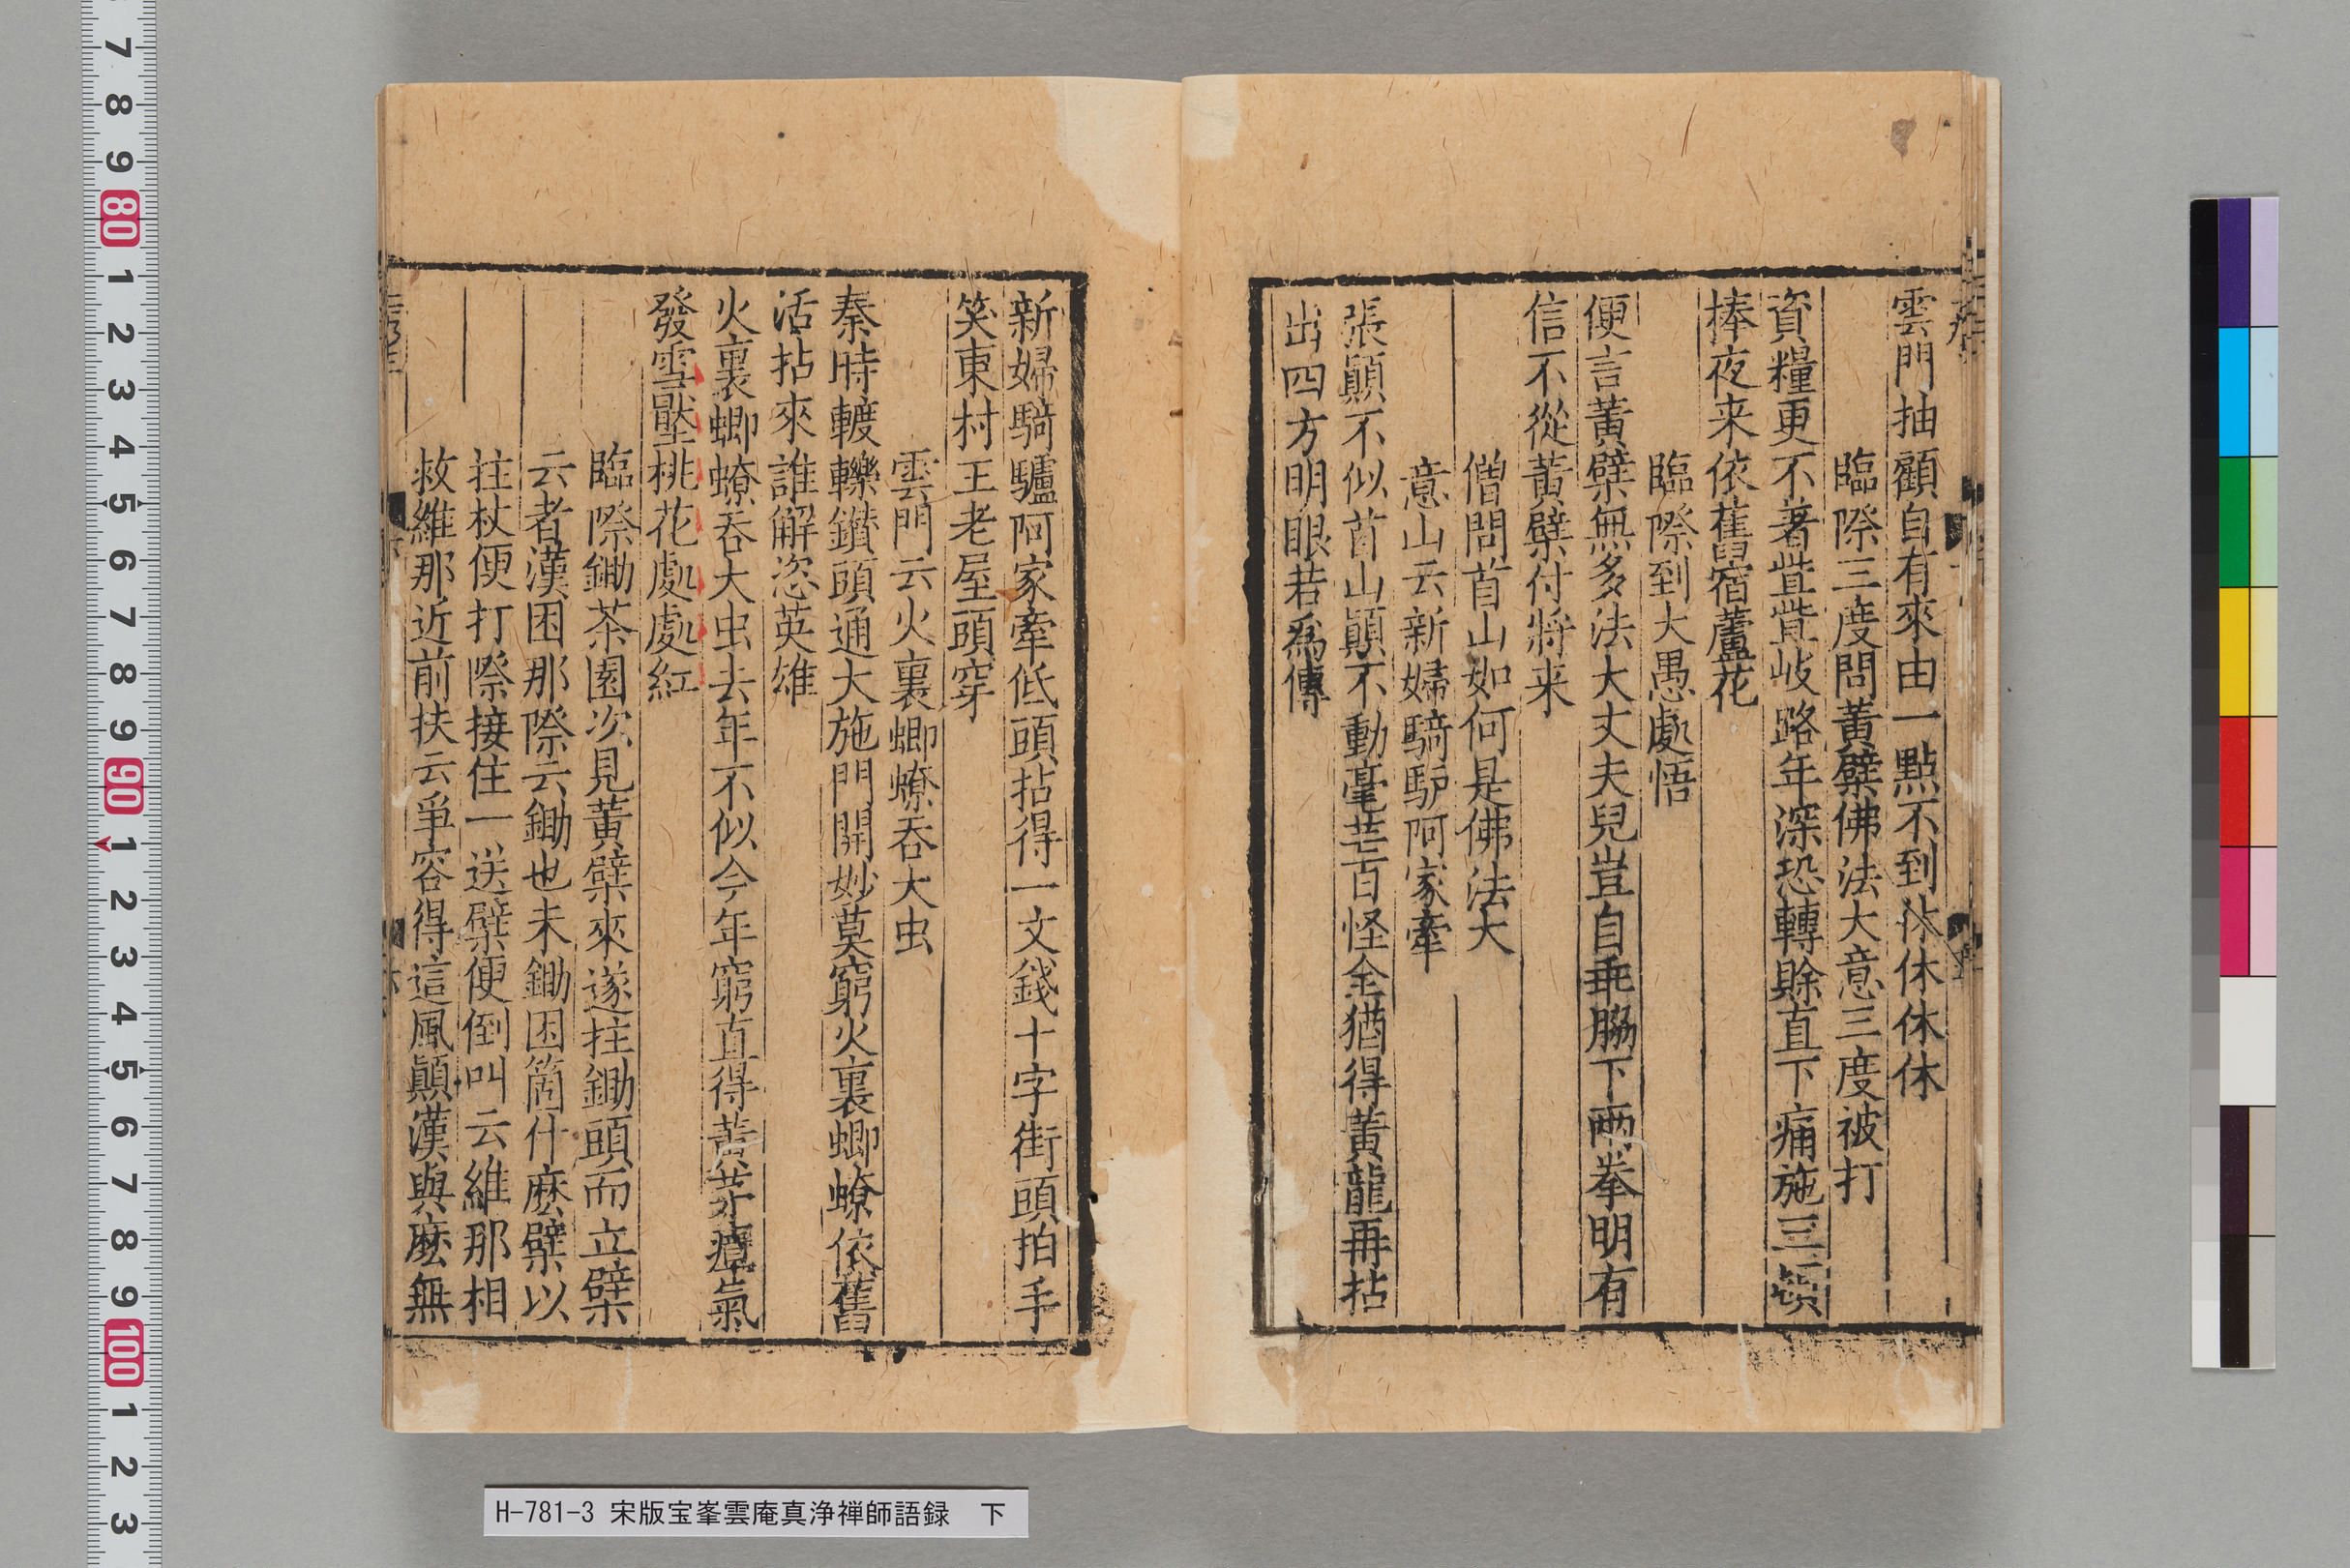 雲門抽顧自有來由一點不到休休休休
臨際三度問黃檗佛法大意三度被打
資糧更不著啙啙岐路年深恐轉賖直下痛施三頓
棒夜来依舊宿蘆花
臨際到大愚處悟
便言黃檗無多法大丈夫兒豈自乖脇下兩拳明有
信不從黃檗付將来
僧問首山如何是佛法大
意山云新婦騎馿阿家牽
張顛不似首山顛不動毫芒百怪全猶得黃龍再拈
出四方明眼若為傳
新婦騎驢阿家牽低頭拈得一文錢十字街頭拍手
笑東村王老屋頭穿
雲門云火裏蝍蟟吞大虫
秦時轆轢鑽頭通大施門開妙莫窮火裏蝍蟟依舊
活拈來誰解恣英雄
火裏蝍蟟吞大虫去年不似今年窮直得黃芽瘴氣
發雪壓桃花處處紅
臨際鋤茶園次見黃檗來遂拄鋤頭而立檗
云者漢困那際云鋤也未鋤困箇什麽檗以
拄杖便打際接住一送檗便倒叫云維那相
救維那近前扶云爭容得這風顛漢與麽無
H-781-3 宋版宝峯雲庵真浄禅師語録 下
7
8
9
80
1
2
3
4
5
6
7
8
9
90
1
2
3
4
5
6
7
8
9
100
1
2
3